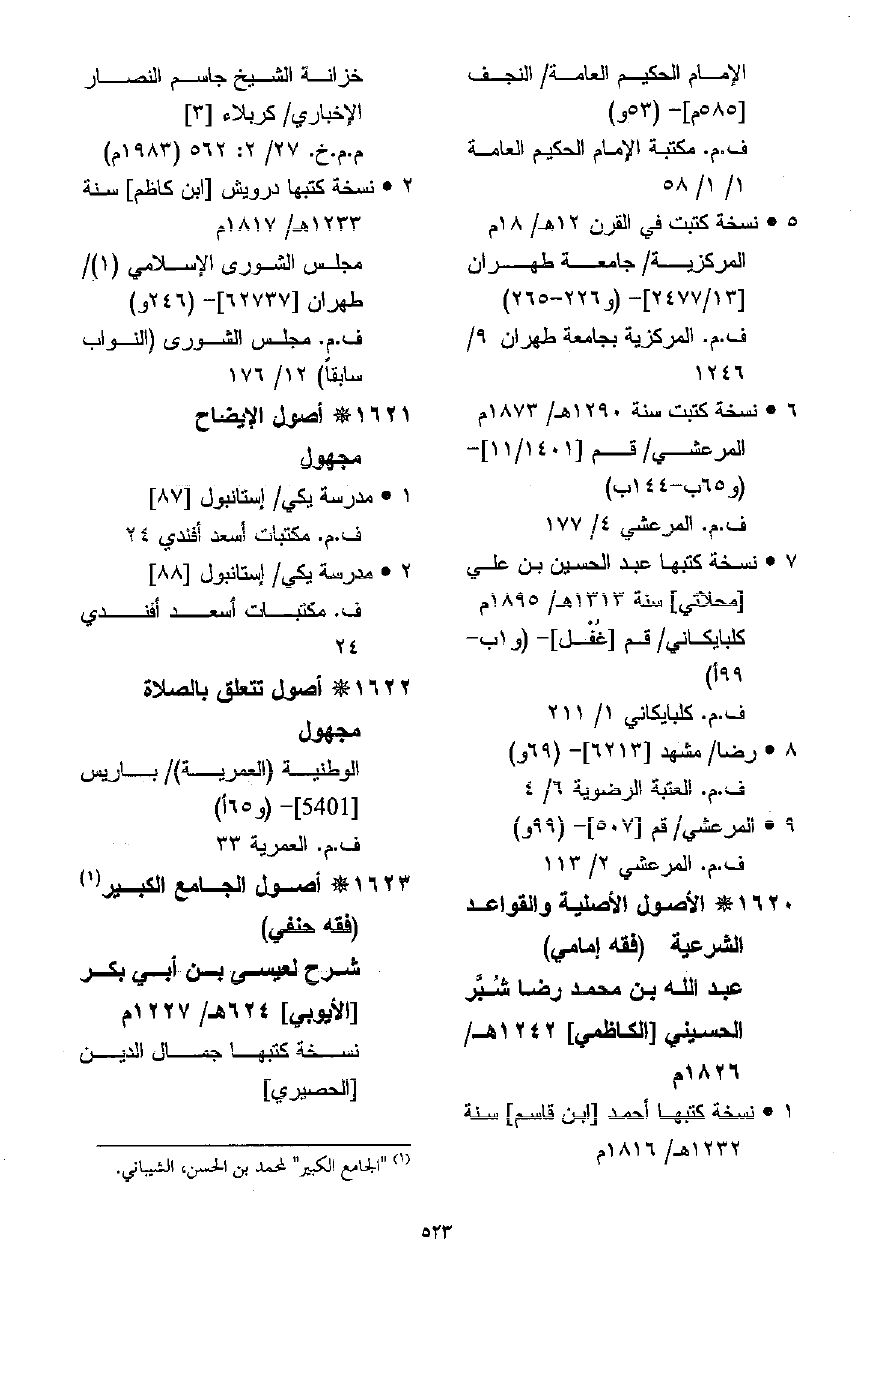 الإمام الحكيم العامة/ النجف
[٥٨٥م]- (٥٣و)
ف.م. مكتبة الإمام الحكيم العامة
١/ ١/ ٥٨
٥ • نسخة كتبت في القرن ١٢هـ/ ١٨م
المركزية/ جامعة طهران
[٢٤٧٧/١٣]- (و٢٢٦-٢٦٥)
ف.م. المركزية بجامعة طهران ٩/
١٢٤٦
٦ • نسخة كتبت سنة ١٢٩٠هـ/ ١٨٧٣م
المرعشي/ قم [١١/١٤٠١]-
(و٦٥ب-١٤٤ب)
ف.م. المرعشي ٤/ ١٧٧
٧ • نسخة كتبها عبد الحسين بن علي
[محلاتي] سنة ١٣١٣هـ/ ١٨٩٥م
كلبايكاني/ قم [غُفْل]- (و١ب-
٩٩أ)
ف.م. كلبايكاني ١/ ٢١١
٨ • رضا/ مشهد [٦٢١٣]- (٦٩و)
ف.م. العتبة الرضوية ٦/ ٤
٩ • المرعشي/ قم [٥٠٧]- (٩٩و)
ف.م. المرعشي ٢/ ١١٣
١٦٢٠* الأصول الأصلية والقواعد
الشرعية (فقه إمامي)
عبد الله بن محمد رضا شُبَّر
الحسيني [الكاظمي] ١٢٤٢هـ/
١٨٢٦م
١ • نسخة كتبها أحمد [ابن قاسم] سنة
١٢٣٢هـ/ ١٨١٦م
خزانة الشيخ جاسم النصار
الإخباري/ كربلاء [٣]
م.م.خ. ٢٧/ ٢: ٥٦٢ (١٩٨٣م)
٢ • نسخة كتبها درويش [ابن كاظم] سنة
١٢٣٣هـ/ ١٨١٧م
مجلس الشورى الإسلامي (١)/
طهران [٦٢٧٣٧]- (٢٤٦و)
ف.م. مجلس الشورى (النواب
سابقاً) ١٢/ ١٧٦
١٦٢١* أصول الإيضاح
مجهول
١ • مدرسة يكي/ إستانبول [٨٧]
ف.م. مكتبات أسعد أفندي ٢٤
٢ • مدرسة يكي/ إستانبول [٨٨]
ف. مكتبات أسعد أفندي
٢٤
١٦٢٢* أصول تتعلق بالصلاة
مجهول
الوطنية (العمرية)/ باريس
[5401]- (و٦٥أ)
ف.م. العمرية ٣٣
١٦٢٣* أصول الجامع الكبير(١)
(فقه حنفي)
شرح لعيسى بن أبي بكر
[الأيوبي] ٦٢٤هـ/ ١٢٢٧م
نسخة كتبها جمال الدين
[الحصيري]
(١) "الجامع الكبير" لمحمد بن الحسن، الشيباني.
٥٢٣